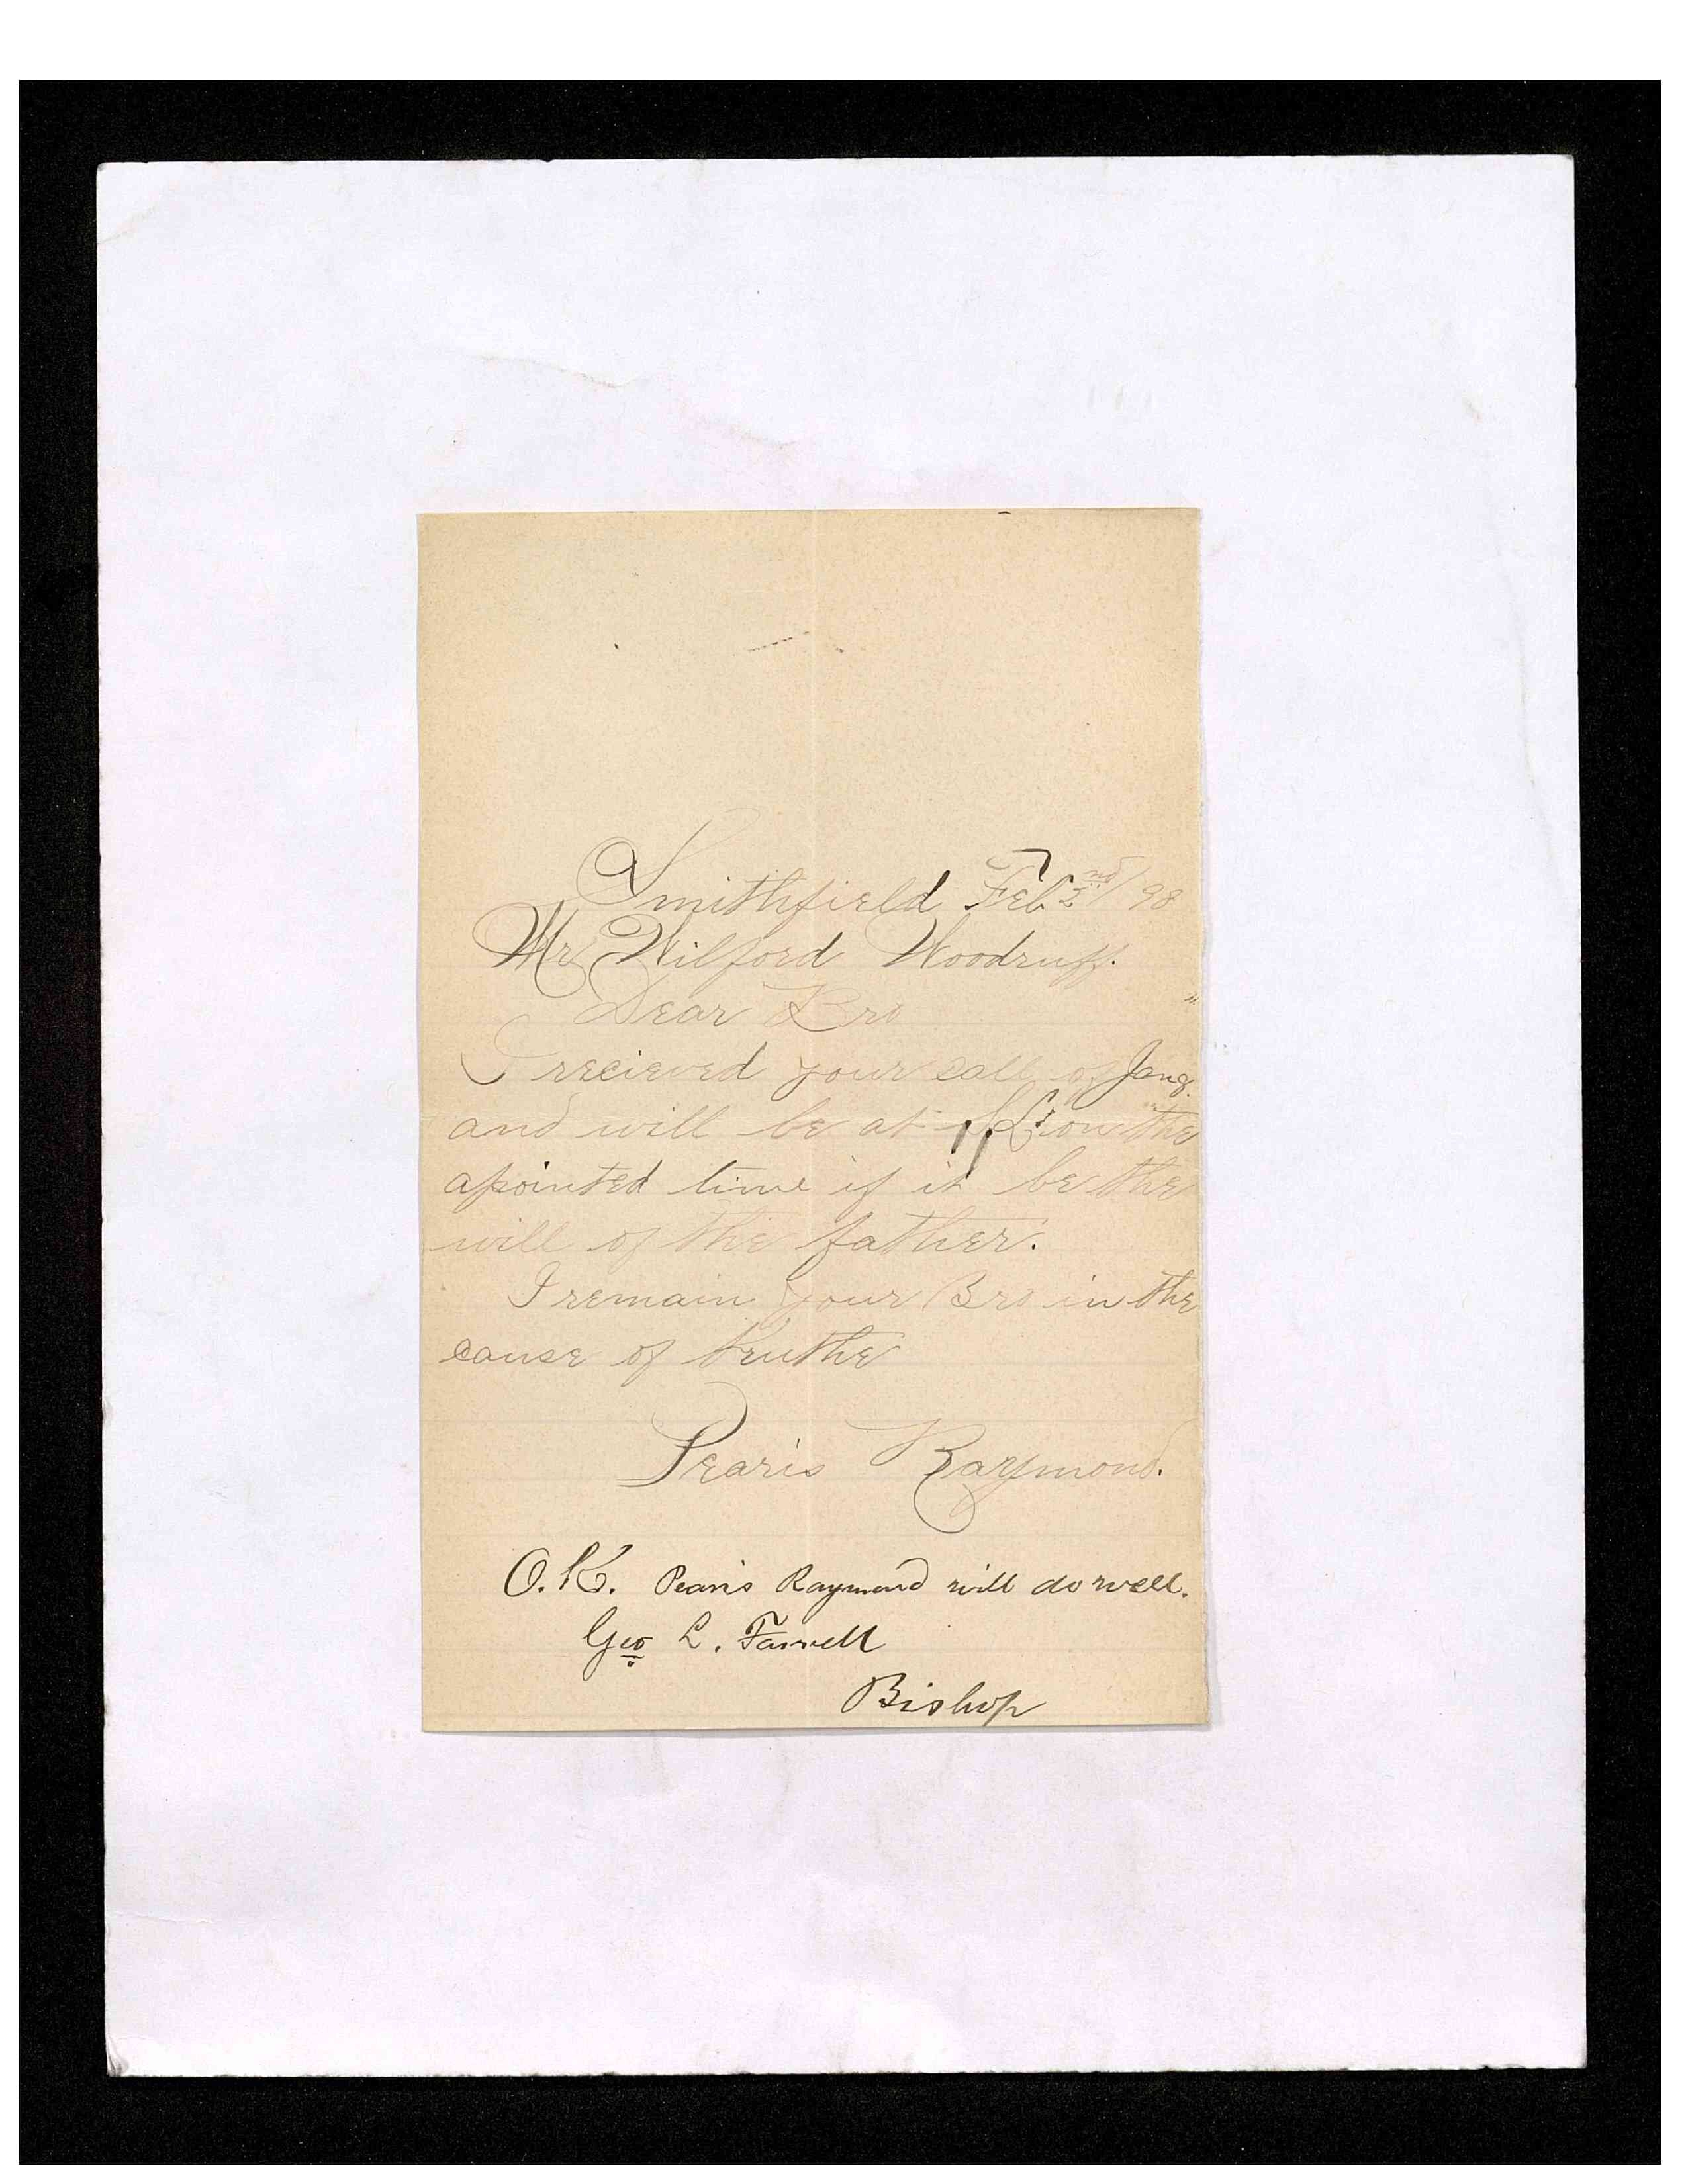 Smithfield Feb 2nd/98
Mr Wilford Woodruff.
Dear Bro
I recieved your call of Jan
and will be at S L on the
apointed time if it be the
will of the father.
I remain your Bro in the
cause of truthe
Pearis Raymond.
O.K. Pearis Raymond will do well.
Geo L. Farrell
Bishop